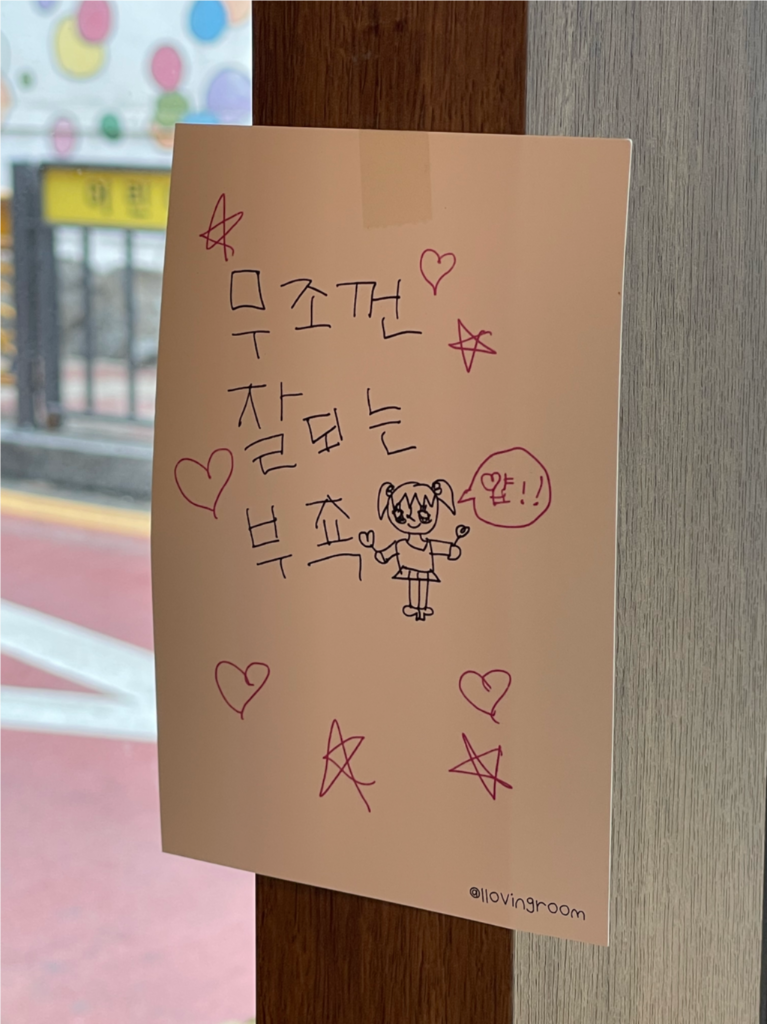 어린
무조껀
잘되는
부쟉
얍!!
@llovingroom